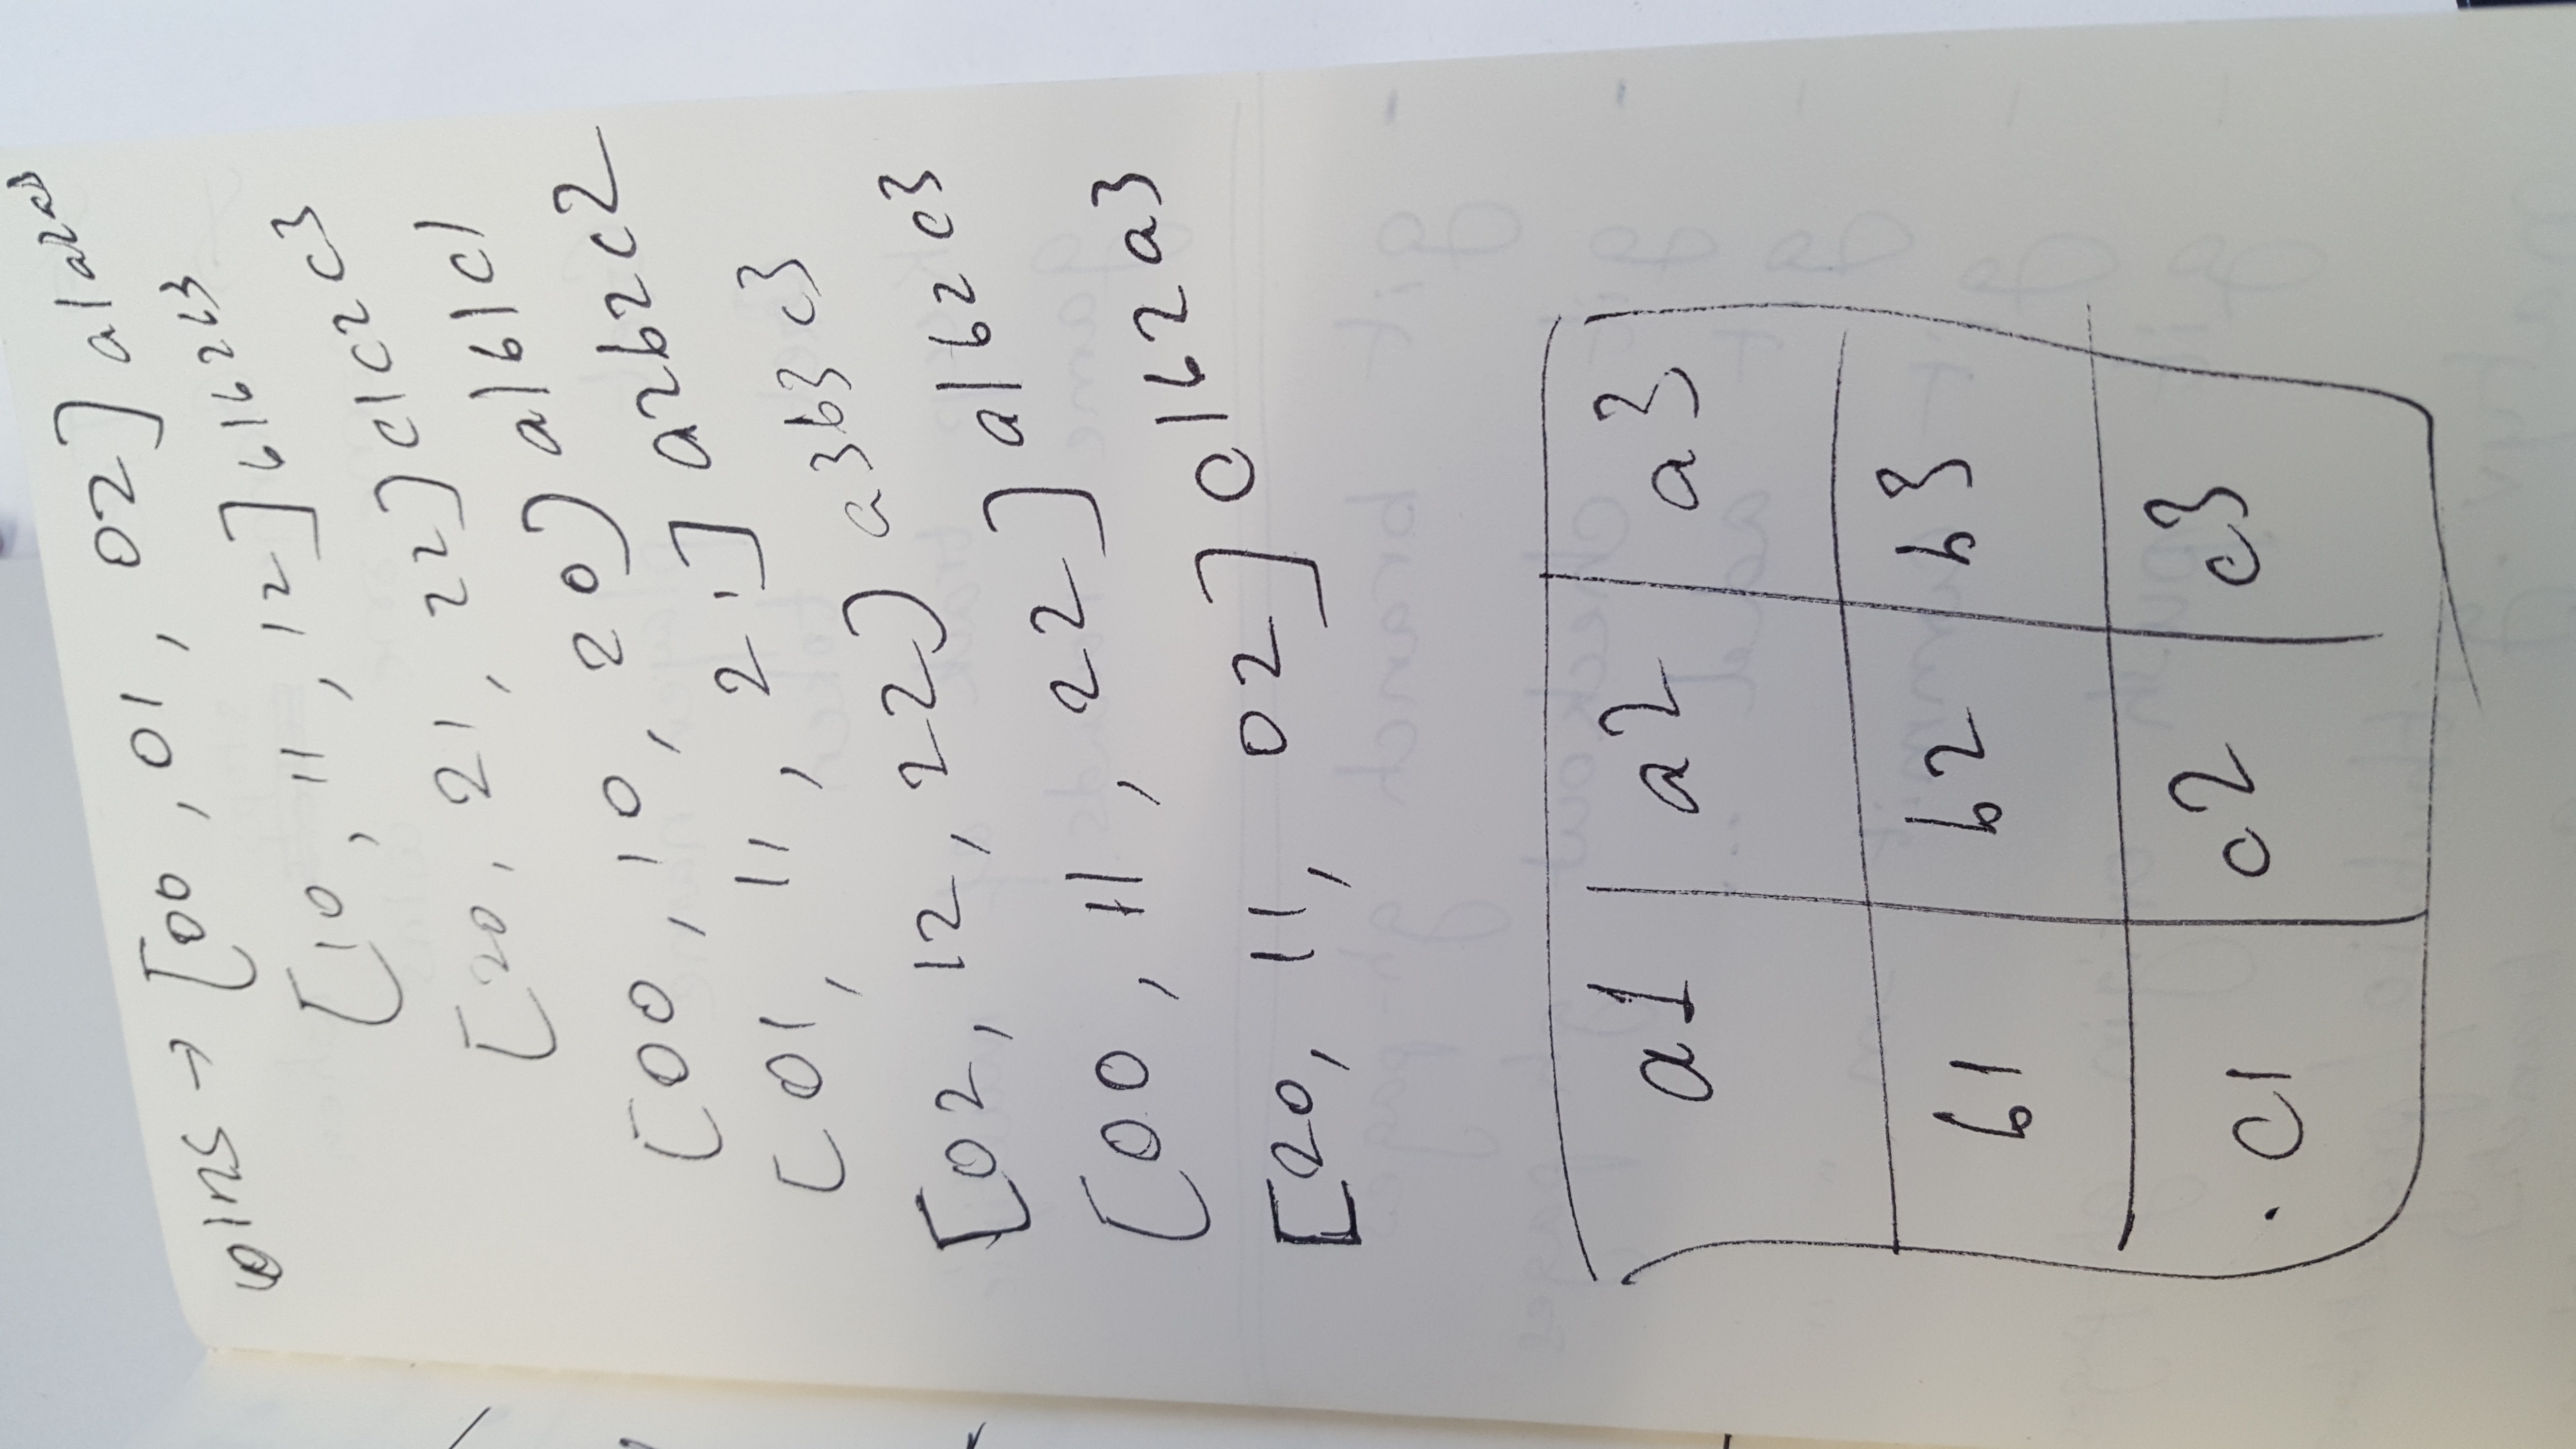 wins → [00, 01, 02] a1a2a3
[10, 11, 12] b1b2b3
[20, 21, 22] c1c2c3
[00, 10, 20] a1b1c1
[01, 11, 21] a2b2c2
[02, 12, 22] a3b3c3
[00, 11, 22] a1b2c3
[20, 11, 02] c1b2a3
a1 a2 a3
b1 b2 b3
c1 c2 c3